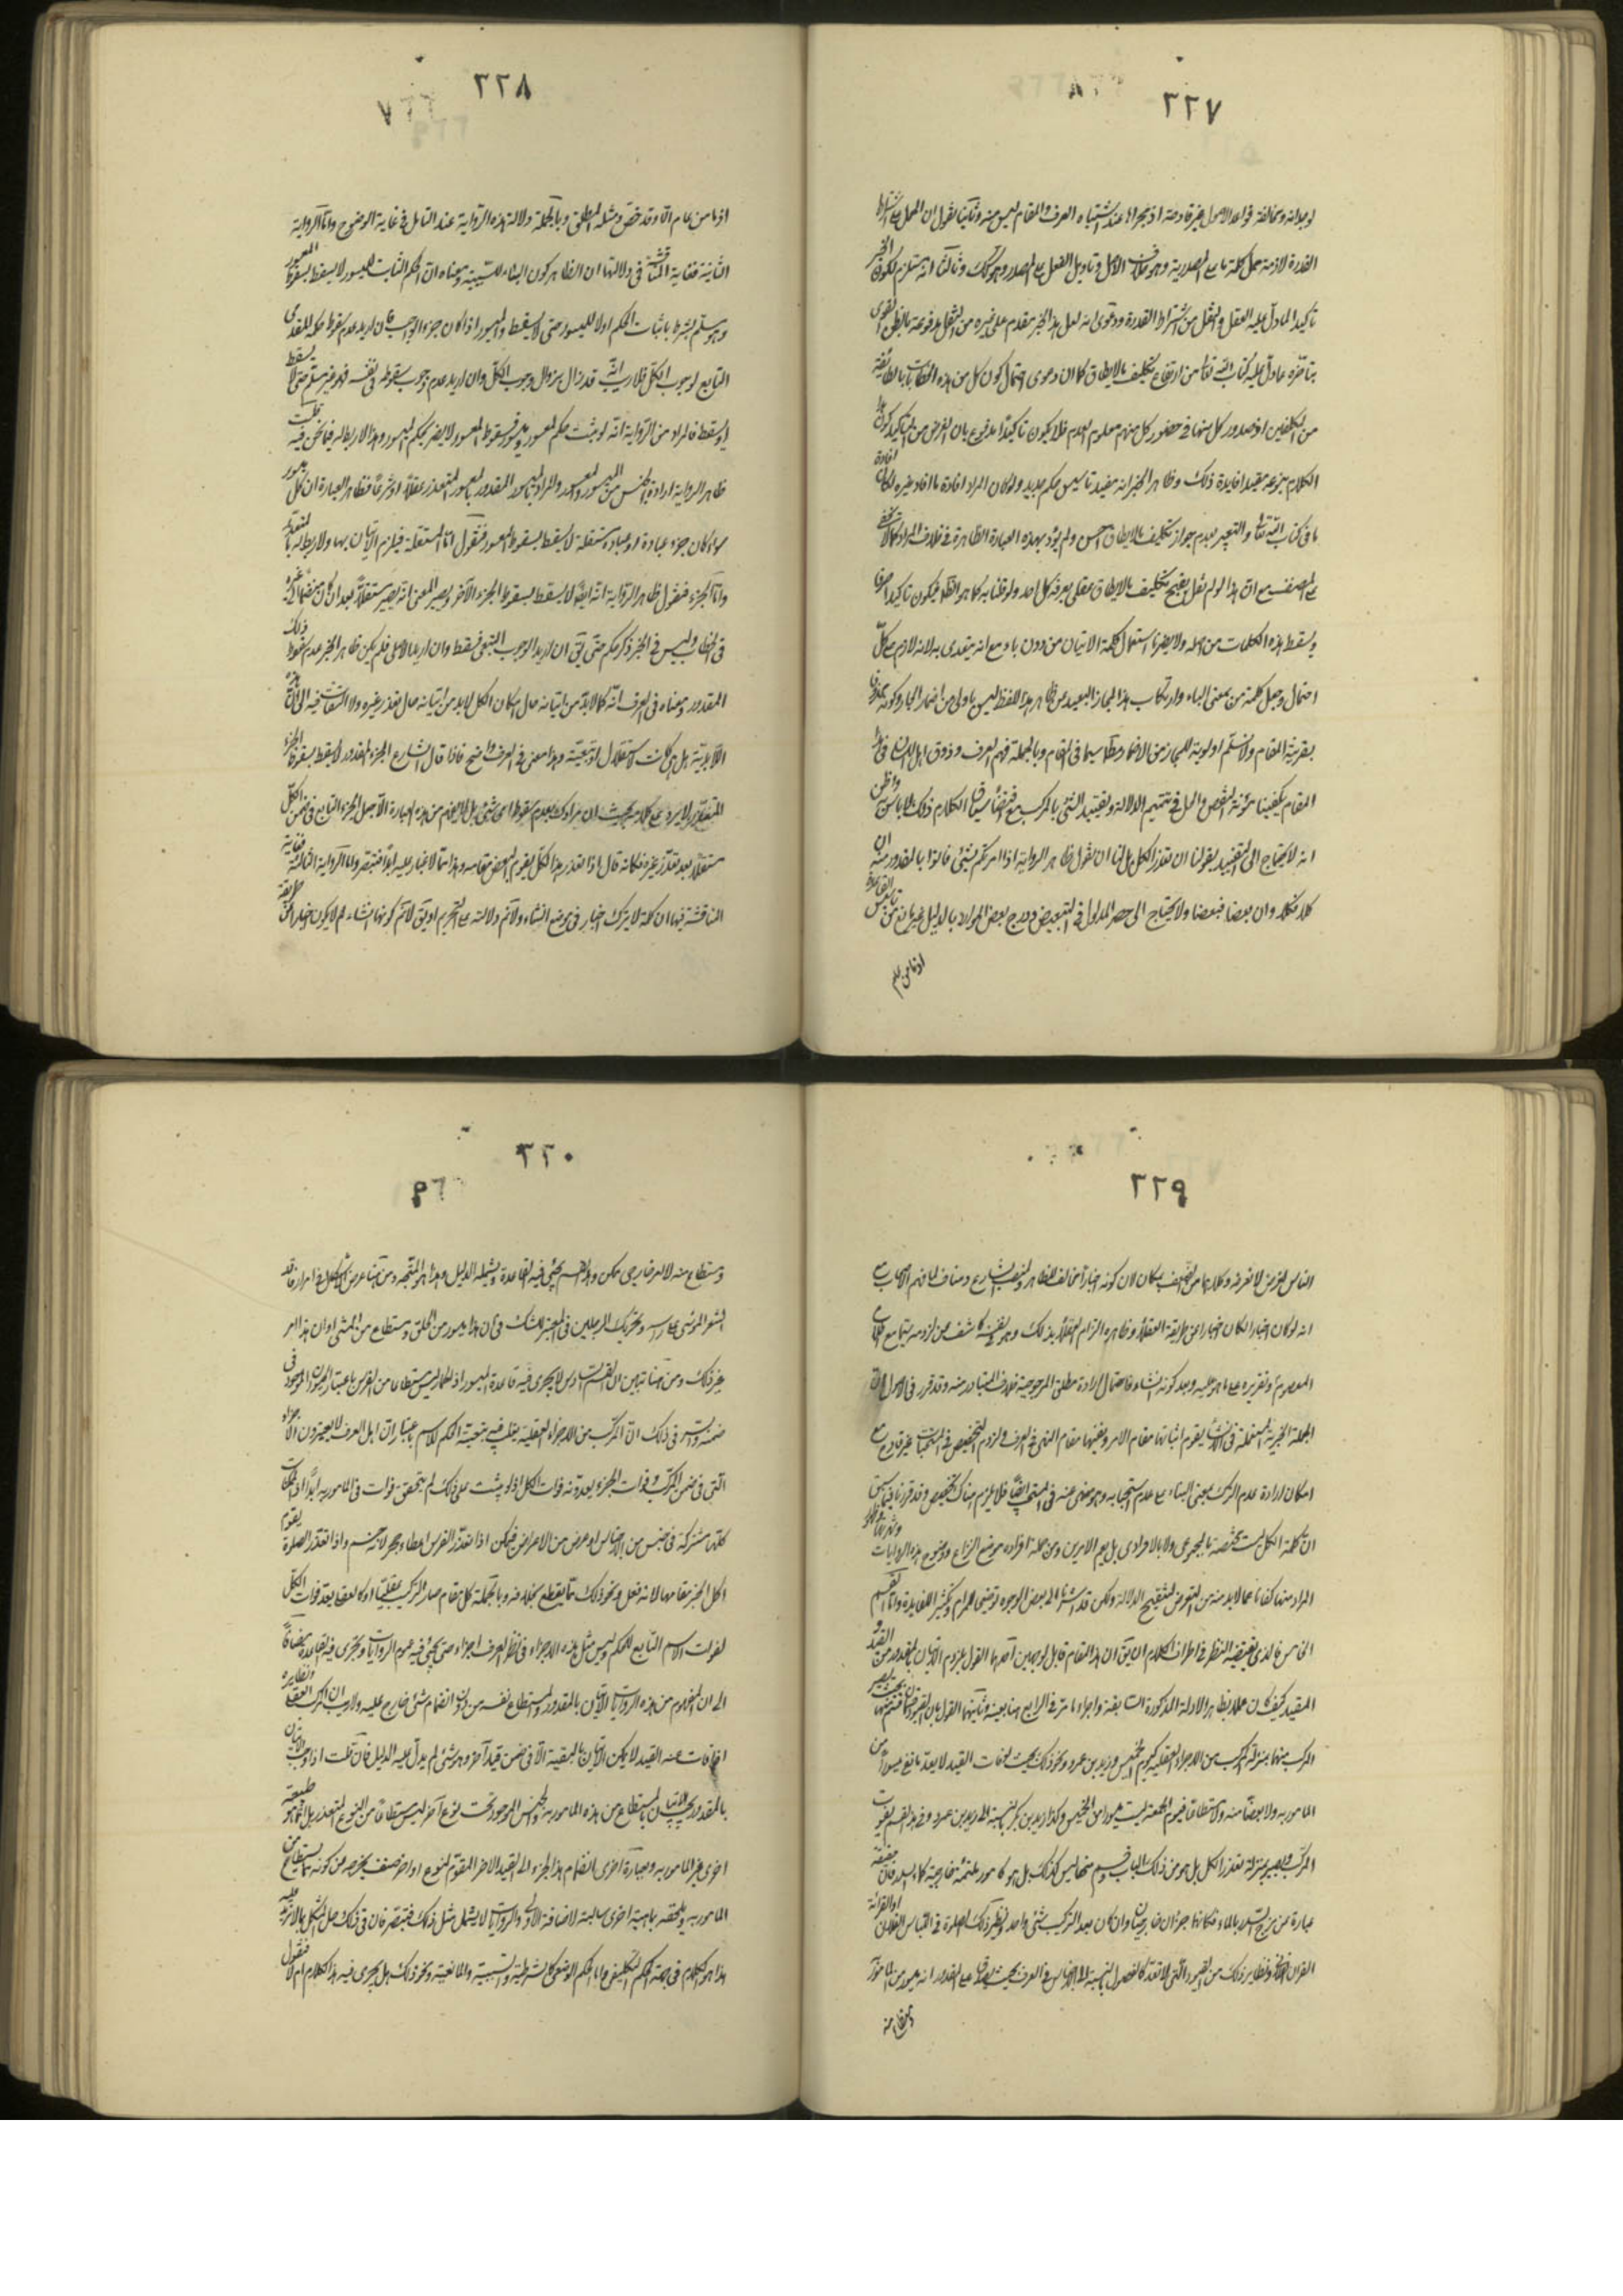 ٢٢٧
لوجدانه ومخالفة قواعد الاصول غير قادحة اذ مجراها عند اشتباه العرف والمقام ليس منه وثانيا نقول ان الحمل على اشتراط
القدرة لازمة حمل كلمة ما على المصدرية وهو خلاف الاصل وتأويل الفعل على المصدر وهو كذلك وثالثا انه يستلزم لكون الخبر
تاكيدا لما دل عليه العقل والنقل من اشتراط القدرة ودعوى انه لعل هذا الخبر مقدم على غيره من النقل مدفوعة
بتأخره عما دل عليه كتاب الله تعالى من ارتفاع تكليف ما لا يطاق كما ان دعوى احتمال كون كل من هذه الخطابات بالطائفة
من المكلفين اذ صدور كل منها في حضور كل منهم معلوم العدم فلا يكون تاكيدا مدفوع بان الغرض من التاكيد كون هذا
الكلام بنوعه مفيدا فايدة ذلك وظاهر الخبر انه مفيد تاسيس حكم جديد ولو كان المراد افادة ما افاد غيره لكان افادة
ما في كتاب الله تعالى والتعبير بعدم جواز تكليف ما لا يطاق احسن ولم يؤد بهذه العبارة الظاهرة في خلاف المراد كما لا يخفى
على المنصف مع ان هذا لو لم نقل بقبح تكليف ما لا يطاق عقلي يعرفه كل احد ولو قلنا به كما هو الظاهر فيكون تاكيدا صرفا
ويسقط هذه الكلمات من اصله ولا يضرنا استعمال كلمة الاتيان من دون باء مع انه يتعدى به لانه لازم على كل
احتمال وجعل كلمة من بمعنى الباء وارتكاب هذا المجاز البعيد عن ظاهر هذا اللفظ ليس باولى من اضمار الجار وكونه محذوفا
بقرينة المقام ولا نسلم اولوية المجاز من الاضمار مطلقا سيما في المقام وبالجملة فهم العرف وذوق اهل اللسان في هذا
المقام يكفينا مؤنة الفحص والحل في تتميم الدلالة وتقييد الشئ بالمركب مع اقتضاء سياق الكلام ذلك لا باس به واظن
انه لا يحتاج الى التقييد بقولنا ان تعذر الكل بل لنا ان نقول ظاهر الرواية اذا امرتكم بشئ فاتوا بالمقدور منه ان
كلا فكلا وان بعضا فبعضا ولا يحتاج الى حصر المدلول في التبعيض وخروج بعض الموارد بالدليل غير مانع من تاسيس القاعدة
اذ ما من عام
٢٢٨
اذ ما من عام الا وقد خص ومثله المطلق وبالجملة دلالة هذه الرواية عند التامل في غاية الوضوح واما الرواية
الثانية فغاية المناقشة في دلالتها ان الظاهر كون الباء للسببية ومعناه ان الحكم الثابت للميسور لا يسقط بسقوط المعسور
وهو مسلم بشرط ثبات الحكم اولا للميسور حتى لا يسقط والميسور اذا كان جزء الواجب فان اريد عدم سقوط حكمه المقدمى
التابع لوجوب الكل فلا ريب انه قد زال بزوال وجوب الكل وان اريد عدم وجوب سقوطه في نفسه فهو غير مسلم حتى لا يسقط
او يسقط فالمراد من الرواية انه لو ثبت حكم لمعسور وميسور فسقوط المعسور لا يضر بحكم الميسور وهذا لا ربط له فيما نحن فيه قلت
ظاهر الرواية ارادة الجنس من الميسور والمعسور والمراد بالميسور المقدور وبالمعسور المتعذر عقلا او شرعا فظاهر العبارة ان كل ميسور
سواء كان جزء عبادة او عبادة مستقلة لا يسقط بسقوط المعسور فنقول اما المستقلة فيلزم الاتيان بها ولا ربط له بالمتعذر
واما الجزء فنقول ظاهر الرواية انه ايضا لا يسقط بسقوط الجزء الآخر ويصير المعنى انه يصير مستقلا بعد ان كان منضما الى غيره
في الخطاب وليس في الخبر ذكر حكم حتى يق ان اريد الوجوب التبعى فيسقط وان اريد الاصلى فلم يكن ظاهر الخبر عدم سقوط ذلك
المقدور ومعناه في العرف انه كما لابد من اتيانه حال امكان الكل لابد من اتيانه حال تعذر غيره ولا التفات فيه الى ان هذه
اللابدية هل هي كانت بالاستقلال او بتبعية وهذا معنى في العرف واضح فاذا قال الشارع الجزء المقدور لا يسقط بسقوط الجزء
المتعذر لا يرد على كلامه بحيث ان مرادك بعدم سقوط اى شئ بل لا يفهم من هذه العبارة الا جعل الجزء التابع في ضمن الكل
مستقلا بعد تعذر غيره فكانه قال اذا تعذر هذا الكل يقوم البعض مقامه وهذا مما لا غبار عليه ابدا فتبصر واما الرواية الثالثة فغاية
المناقشة فيها ان كلمة لا يترك اخبار في موضع انشاء ولا نم دلالته على التحريم او يق لا نم كونها انشاء لم لا يكون اخبارا عن طريقة
٢٢٩
الناس
انه لو كان اخبارا لكان اخبارا عن طريقة العقلاء وظاهره الزام العقلاء بذلك وهو بنفسه كاشف عن لزومه
المعصوم وتقريره على ما هو عليه وبعد كونه انشاء فاحتمال ارادة مطلق المرجوحية خلاف المتبادر منه وقد قرر في الاصول ان
الجملة الخبرية المستعملة في الانشاء يقوم اثباتها مقام الامر ونفيها مقام النهى في العرف ولزوم التخصيص في المستحبات غير قادح مع
امكان ارادة عدم الترك بمعنى البناء على عدم استحبابه وهو منهى عنه في المستحب ايضا فلا يلزم هناك تخصيص وقد قررنا فيما سبق
ان كلمة الكل ليست مختصة بالمجموعى ولا بالافرادى بل يعم الامرين ومن جملة افراده موضع النزاع ووضوح هذه الروايات
المراد منها كفانا عما لابد منه من التعرض لتنقيح الدلالة ولكن قد اشرنا الى بعض الوجوه توضيحا للمرام وتكثيرا للفايدة واما القسم
الخامس فالذى يقتضيه النظر في اطراف الكلام ان يق ان هذا المقام قابل لوجهين احدهما القول بلزوم الاتيان بالمقدور من القيد و
المقيد كيف كان عملا بظاهر الادلة المذكورة السابقة واجراء ما مر في الرابع هنا بعينه وثانيهما القول بان
المركب منها بمنزلة المركب من الاجزاء العقلية كيوم الخميس وزيد بن عمرو ونحو ذلك بحيث لو فات القيد لا يعد الباقى ميسورا من
المامور به ولا بعضا منه ولا مستطاعا فيوم الجمعة ليس ميسورا من الخميس وكذا زيد بن بكر بالنسبة الى زيد بن عمرو وفي هذا القسم يفوت
المركب ويصير بمنزلة تعذر الكل بل هو من ذلك الباب
عبارة عن مزج السدر بالماء فكانهما جزءان خارجيان وان كان بعد التركيب شئ واحد ونظير ذلك الصلوة في اللباس الفلانى او القرائة
القران ونظاير ذلك من القيود التى لا تعد كالفصول بالنسبة الى الاجناس في العرف بحيث يصدق على المقدور انه ميسور من المامور
٢٣٠
ومستطاع منه لا امر خارجى ممكن وهذا القسم يجئ فيه القاعدة ويشمله الدليل وهذا هو المتجه ومن هنا عرض الاشكال في امرار
الشعر الموسى على راسه وتحريك الرجلين في المعبر للشك في ان هذا ميسور من الحلق ومستطاع من المشى او ان هذا امر
غير ذلك ومن هنا تبين ان القسم السادس لا يجرى فيه قاعدة الميسور اذ الحمار ليس مستطاعا من الفرس باعتبار الحيوان الموجود في
ضمنه والسر في ذلك ان المركب من الاجزاء العقلية يتعلق فيه بتبعية الحكم للاسم باعتبار ان اهل العرف لا يعتبرون الاجزاء
التى في ضمن المركب وفوات الجزء يعدونه فوات الكل اذ لو ثبت على ذلك لم يتحقق فوات في المامور به ابدا
كلها مشتركة في جنس من الاجناس او عرض من الاعراض فيمكن اذا تعذر الفرس اعطاء حجر لانه جسم واذا تعذر الصلوة يقوم
اكل الخبز مقامها لانه فعل ونحو ذلك مما يقطع بخلافه وبالجملة كل مقام صار التركيب عقليا او كالعقلى يعد فوات الكل
لفوات الاسم التابع للحكم وليس مثل هذه الاجزاء في نظر العرف اجزاء حتى يجئ فيه عموم الروايات ويجرى فيه القاعدة مضافا
الى ان المفهوم من هذه الروايات الاتيان بالمقدور والمستطاع نفسه من دون انضمام شئ خارج عليه ولا ريب ان المركب العقلى ونظايره
اذا فات عنه القيد لا يمكن الاتيان بالبقية الا في ضمن قيد آخر وهو شئ لم يدل عليه الدليل فان قلت اذا وجب الاتيان
بالمقدور يجب الاتيان بالمستطاع من هذه المامور به والجنس الموجود تحت نوع آخر ليس مستطاعا من النوع المتعذر بل انما هو طبيعة
اخرى غير المامور به وبعبارة اخرى انضمام هذا الجزء الى القيد الاخر المقوم لنوع اواخر صنف يخرجه عن كونه مستطاعا من
المامور به ويلحقه بماهية اخرى سالبة لاضافة الاولى والروايات لا يشمل مثل ذلك فتبصر فان في ذلك حل اشكال ما لا مزيد عليه
هذا هو الكلام في جهة الحكم التكليفى واما الحكم الوضعى كالشرطية والسببية والمانعية ونحو ذلك هل يجرى فيه هذا الكلام ام لا فنقول